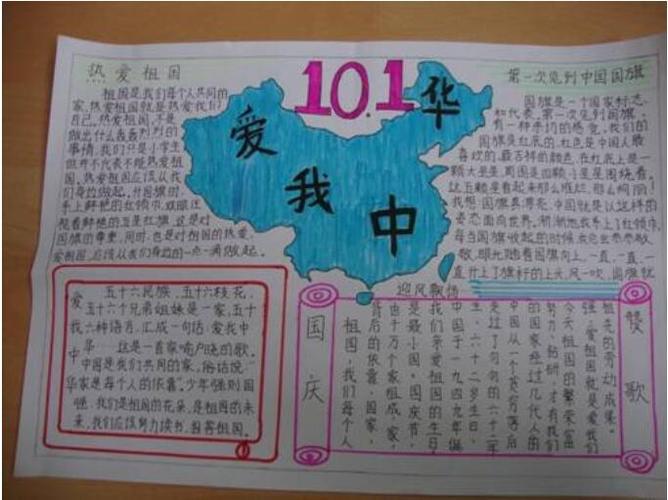 10.1
爱我中华
热爱祖国
祖国是我们每个人共同的
家,热爱祖国就是热爱我们
自己,热爱祖国,不是
做出什么轰轰烈烈的
事情,我们只是小学生
做并不代表不能热爱祖
国,热爱祖国应该从我
们身边做起,升国旗时
手上鲜艳的红领巾,双眼注
视着鲜艳的五星红旗,这是对
国旗的尊重,同时,也是对祖国的热爱
爱祖国,应该从我们身边的一点一滴做起。
第一次见到中国国旗
国旗是一个国家标志
和代表,第一次见到国旗,
有一种亲切的感觉,我们的
国旗是红底的,红色是中国人最
喜欢的,最吉祥的颜色,在红底上是一
颗大星星,周围是四颗小星星围绕着。
这五颗星看起来那么难忘,那么绚丽!
我想:国旗真漂亮,中国就是以这样的
姿态面向世界,渐渐地我手上了红领巾,
每当国旗收起的时候,我总会恭恭敬
敬,眼光随着国旗向上,一直,一直,一
直升上了旗杆的上头,风一吹,国旗就
迎风飘扬
爱中华
五十六民族,五十六枝花,
五十六个兄弟姐妹是一家,五十
六种语言,汇成一句话,爱我中
华……这是一首家喻户晓的歌。
中国是我们共同的家,俗话说"
家是每个人的依靠",少年强则国
强,我们是祖国的花朵,是祖国的未
来,我们应该努力读书,报答祖国。
赞歌
祖先的劳动成果。
强,爱祖国就是爱我们
今天祖国的繁荣富
努力,钻研,才有我们
的国家,经过几代人的
中国从一个贫穷落后
走过了匆匆的六十二年
生,六十二岁生日,
中国于一九四九年诞
我们亲爱祖国的生日,
是最小国。国庆节,
由千万个家组成,家,
背后的依靠,国家,
祖国,我们每个人
国庆